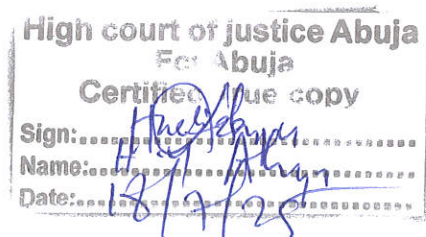 High court of justice Abuja
For Abuja
Certified true copy
Sign:
Name:
Date: 18/7/25